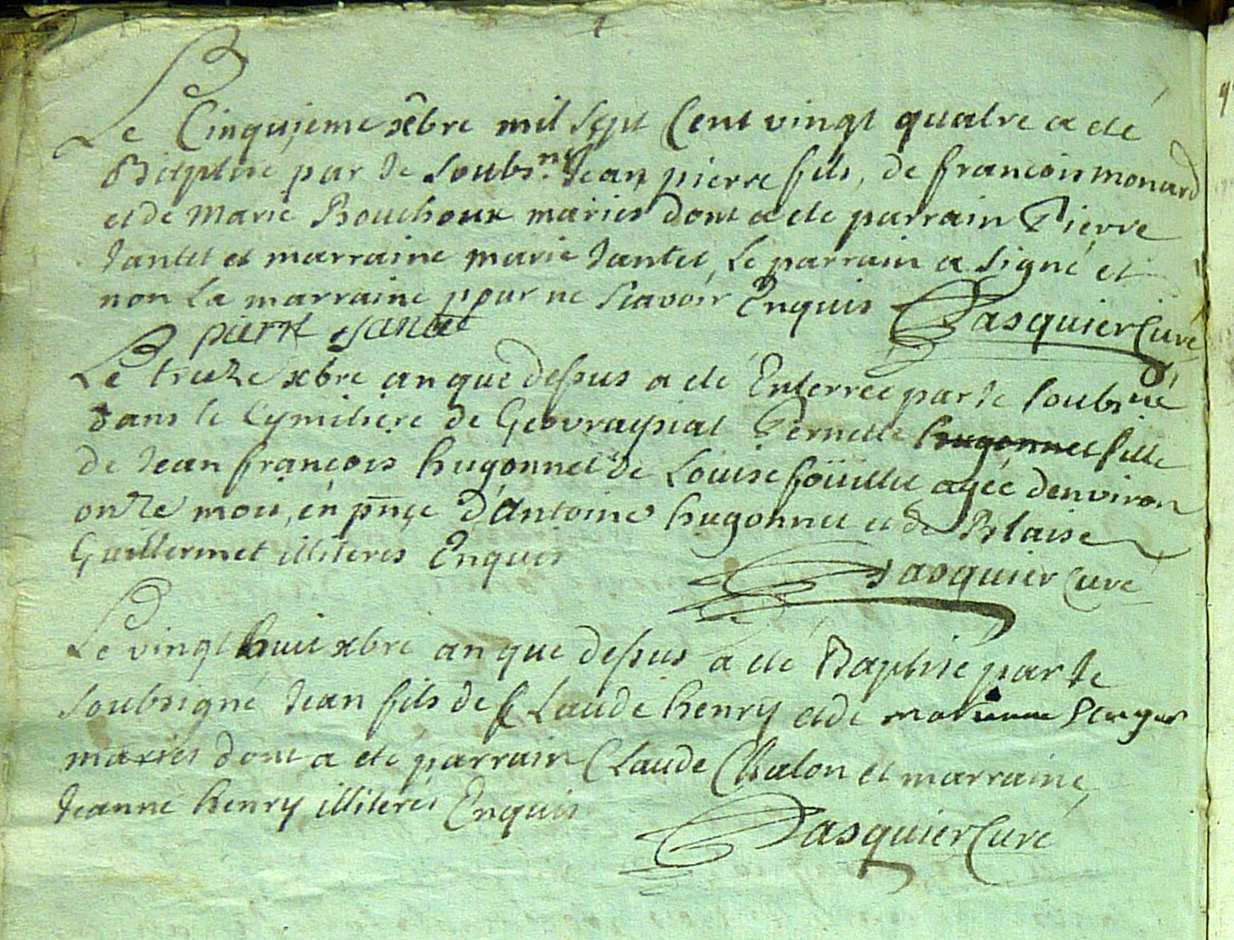 Le Cinquieme xbre mil sept Cent vingt quatre a eté
Baptisé par le soubs.né Jean pierre fils, de francois monard
et de Marie Bouchoux mariés dont a eté parrain Pierre
Jantet et marraine marie Jantet, Le parrain a signé et
non La marraine pour ne scavoir Enquis Pasquier Curé
pierre Jantet
Le treize xbre an que dessus a eté Enterrée par le soubsné
dans le Cymitiére de Gevraysiat Pernette hugonnet fille
de Jean françois hugonnet de Louise foüillet agée denviron
onze mois, en pnçe d'Antoine hugonnet et de Blaise
Guillermet illiterés Enquis Pasquier Curé
Le vingt huit xbre an que dessus a eté Baptisé par le
soubsigné Jean fils de Claude henry et de
mariés dont a eté parrain Claude Chalon et marraine,
Jeanne henry illiterés Enquis Pasquier Curé